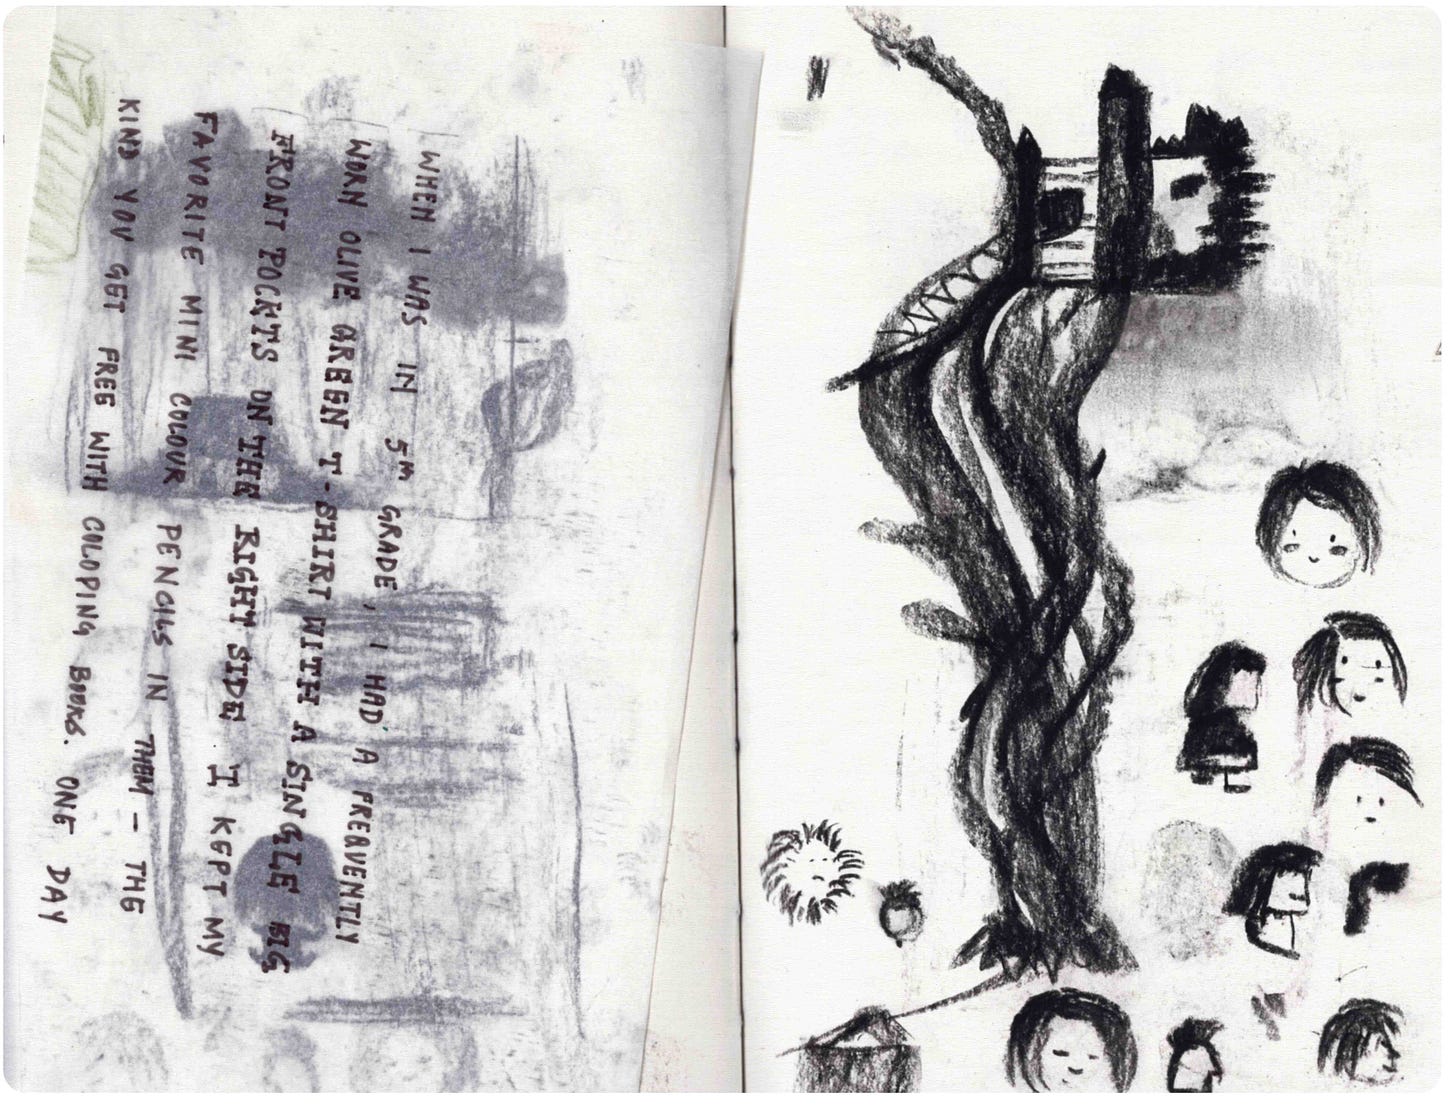 WHEN I WAS IN 5TH GRADE, I HAD A FREQUENTLY
WORN OLIVE GREEN T-SHIRT WITH A SINGLE BIG
FRONT POCKTS ON THE RIGHT SIDE I KEPT MY
FAVORITE MINI COLOUR PENCILS IN THEM – THE
KIND YOU GET FREE WITH COLOPING BOOKS. ONE DAY